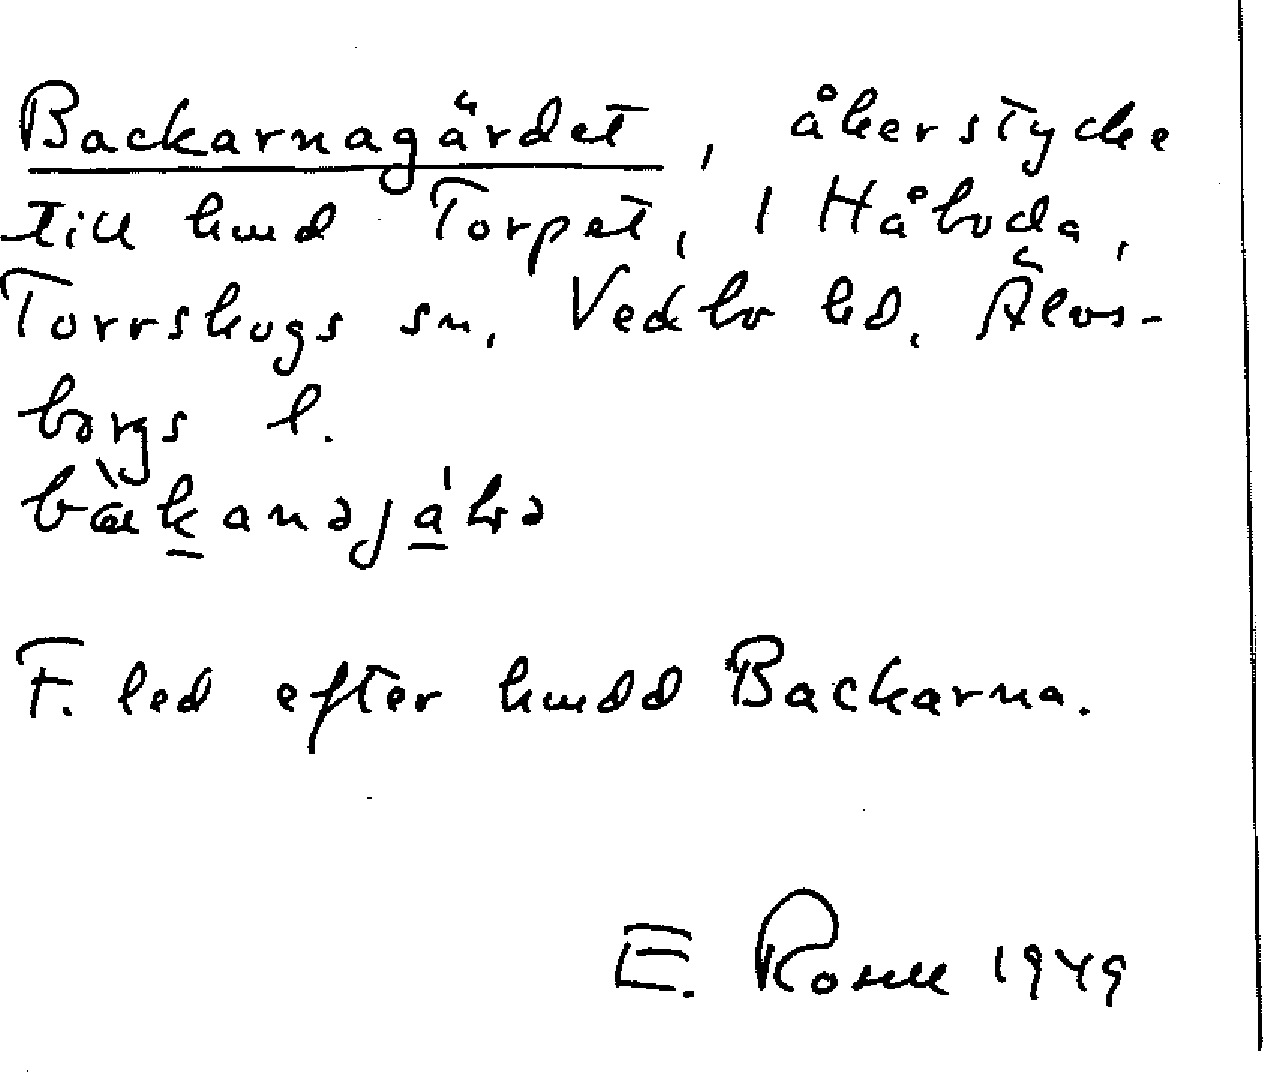 Backarnagärdet, åkerstycke
till hmd Torpet, 1 Håbода,
Torrskogs sn, Vedbo hd, Älvs-
borgs l.
F. led efter hmdd Backarna.
E. Rosell 1949